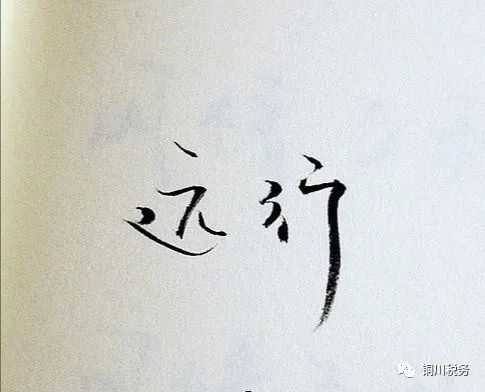 远行
铜川税务